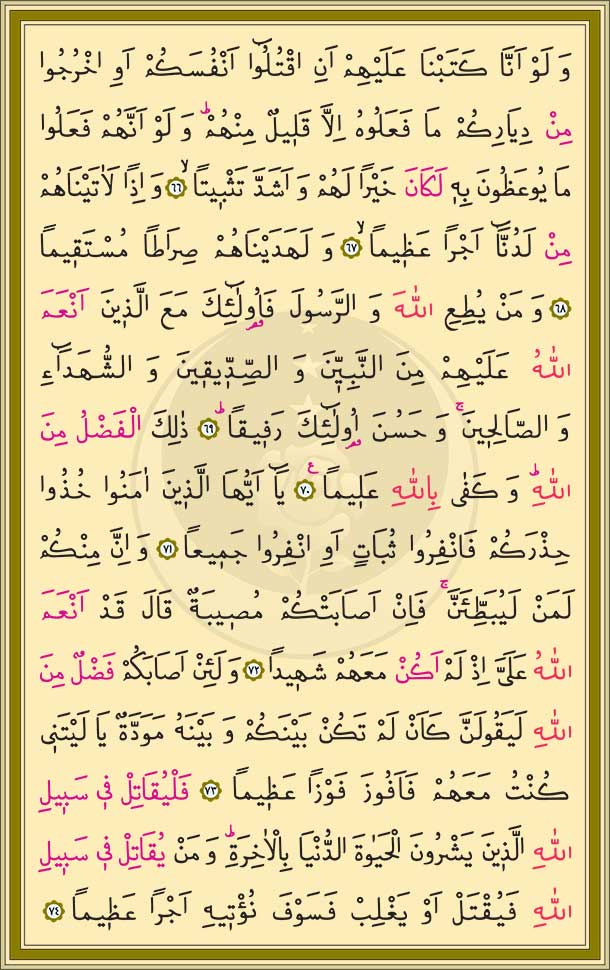 وَ لَوْ اَنَّا كَتَبْنَا عَلَيْهِمْ اَنِ اقْتُلُٓوا اَنْفُسَكُمْ اَوِ اخْرُجُوا
مِنْ دِيَارِكُمْ مَا فَعَلُوهُ اِلَّا قَلٖيلٌ مِنْهُمْ ۜ وَ لَوْ اَنَّهُمْ فَعَلُوا
مَا يُوعَظُونَ بِهٖ لَكَانَ خَيْرًا لَهُمْ وَ اَشَدَّ تَثْبٖيتًا ۙ ﴿٦٦﴾ وَ اِذًا لَاٰتَيْنَاهُمْ
مِنْ لَدُنَّٓا اَجْرًا عَظٖيمًا ۙ ﴿٦٧﴾ وَ لَهَدَيْنَاهُمْ صِرَاطًا مُسْتَقٖيمًا
﴿٦٨﴾ وَ مَنْ يُطِعِ اللّٰهَ وَ الرَّسُولَ فَاُو۬لٰٓئِكَ مَعَ الَّذٖينَ اَنْعَمَ
اللّٰهُ عَلَيْهِمْ مِنَ النَّبِيّٖنَ وَ الصِّدّٖيقٖينَ وَ الشُّهَدَٓاءِ
وَ الصَّالِحٖينَ ۚ وَ حَسُنَ اُو۬لٰٓئِكَ رَفٖيقًا ۜ ﴿٦٩﴾ ذٰلِكَ الْفَضْلُ مِنَ
اللّٰهِ ۜ وَ كَفٰى بِاللّٰهِ عَلٖيمًا ﴿٧٠﴾ ع يَٓا اَيُّهَا الَّذٖينَ اٰمَنُوا خُذُوا
حِذْرَكُمْ فَانْفِرُوا ثُبَاتٍ اَوِ انْفِرُوا جَمٖيعًا ﴿٧١﴾ وَ اِنَّ مِنْكُمْ
لَمَنْ لَيُبَطِّئَنَّ ۚ فَاِنْ اَصَابَتْكُمْ مُصٖيبَةٌ قَالَ قَدْ اَنْعَمَ
اللّٰهُ عَلَيَّ اِذْ لَمْ اَكُنْ مَعَهُمْ شَهٖيدًا ﴿٧٢﴾ وَ لَئِنْ اَصَابَكُمْ فَضْلٌ مِنَ
اللّٰهِ لَيَقُولَنَّ كَاَنْ لَمْ تَكُنْ بَيْنَكُمْ وَ بَيْنَهُ مَوَدَّةٌ يَا لَيْتَنٖى
كُنْتُ مَعَهُمْ فَاَفُوزَ فَوْزًا عَظٖيمًا ﴿٧٣﴾ فَلْيُقَاتِلْ فٖى سَبٖيلِ
اللّٰهِ الَّذٖينَ يَشْرُونَ الْحَيٰوةَ الدُّنْيَا بِالْاٰخِرَةِ ۜ وَ مَنْ يُقَاتِلْ فٖى سَبٖيلِ
اللّٰهِ فَيُقْتَلْ اَوْ يَغْلِبْ فَسَوْفَ نُؤْتٖيهِ اَجْرًا عَظٖيمًا ﴿٧٤﴾